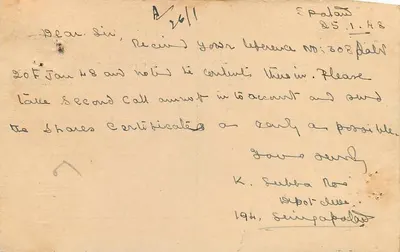 A/26/1
25.1.48
Dear Sir,
Received your reference No: 308
20th Jan 48 and noted the contents there in. Please
take Second Call amount in to account and send
the Shares Certificates as early as possible.
Yours
K. Subba Rao
194.